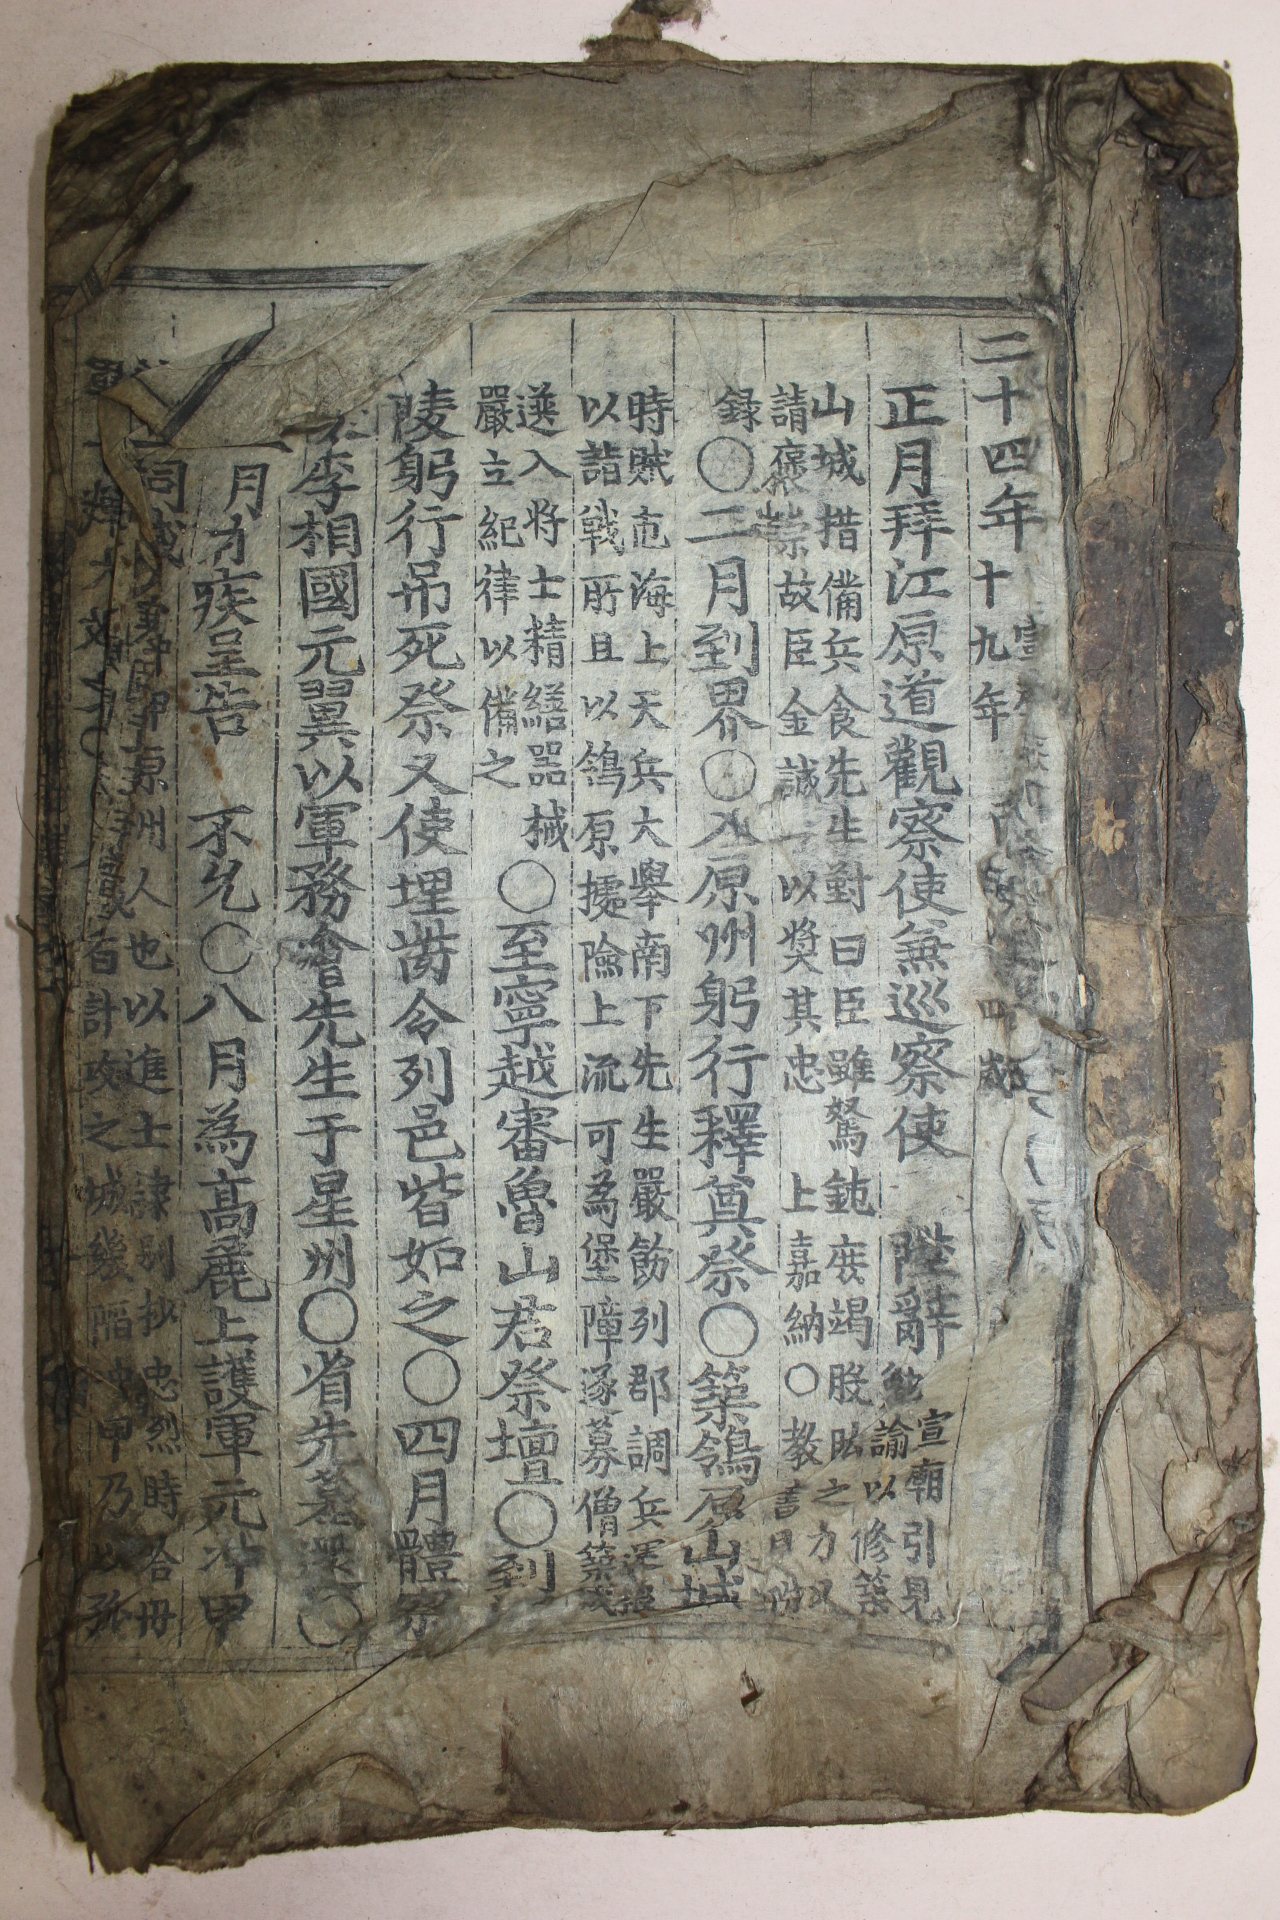 二十四年 十九年 四 歲
正月拜江原道觀察使兼巡察使 陛辭
宣廟引見
諭以修築
山城措備兵食先生對曰臣雖駑鈍庶竭股肱之力又
請褒崇故臣金誠一以奬其忠 上嘉納○教書曰
錄○二月到界○入原州躬行釋奠祭○築鴒原山城
時賊在海上天兵大擧南下先生嚴飭列郡調兵運糧
以詰戰所且以鴒原據險上流可爲堡障遂募僧築城
選入將士精繕器械
嚴立紀律以備之
○至寧越審魯山君祭壇○到
陵躬行吊死祭又使埋胔令列邑皆如之○四月體察
李相國元翼以軍務會先生于星州○省先墓還○
月以疾呈告 不允○八月爲高麗上護軍元冲甲
祠
原州人也以進士隷別抄忠烈時合丹
百計攻之城幾陷冲甲乃以孤